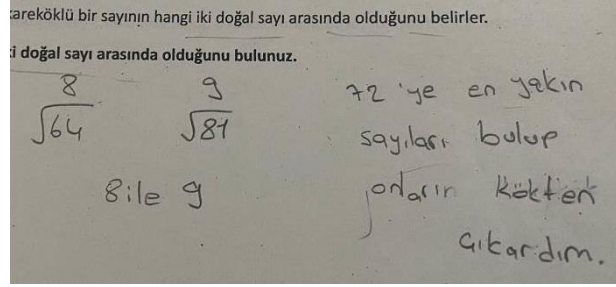 areköklü bir sayının hangi iki doğal sayı arasında olduğunu belirler.
i doğal sayı arasında olduğunu bulunuz.
8 9
√64 √81
8 ile 9
72'ye en yakın
sayıları bulup
onların kökten
çıkardım.